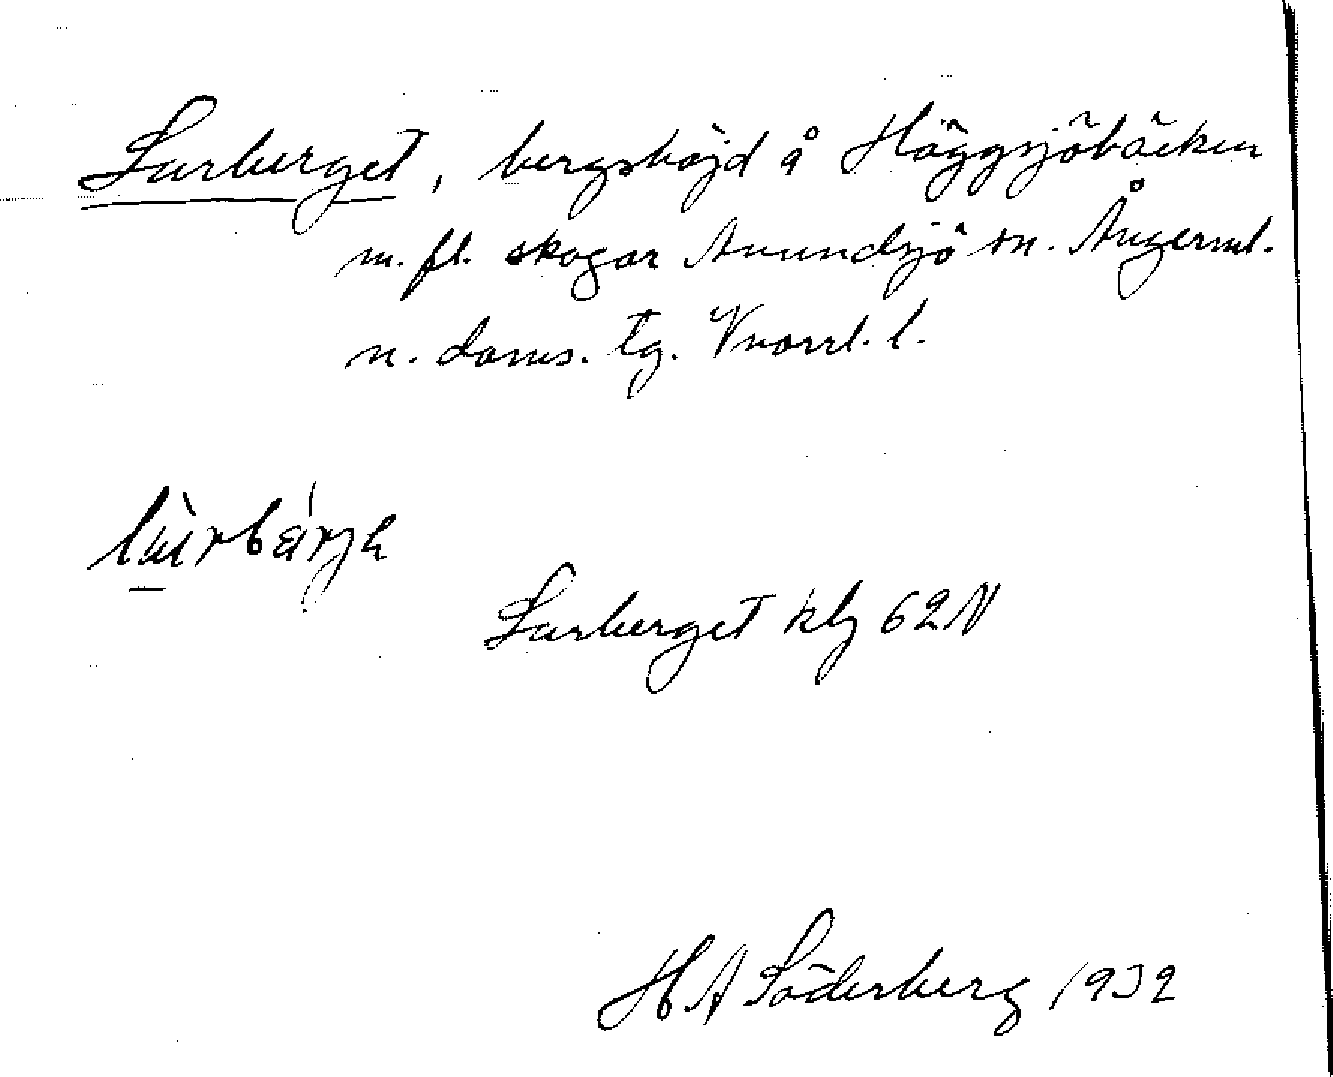 Lurberget, bergshöjd å Häggsjöbäcken
m. fl. skogar Anundsjö sn. Ångerml.
n. doms. tg. Vnorrl. l.
Lurberget kbg 62 N
H A Söderberg 1932